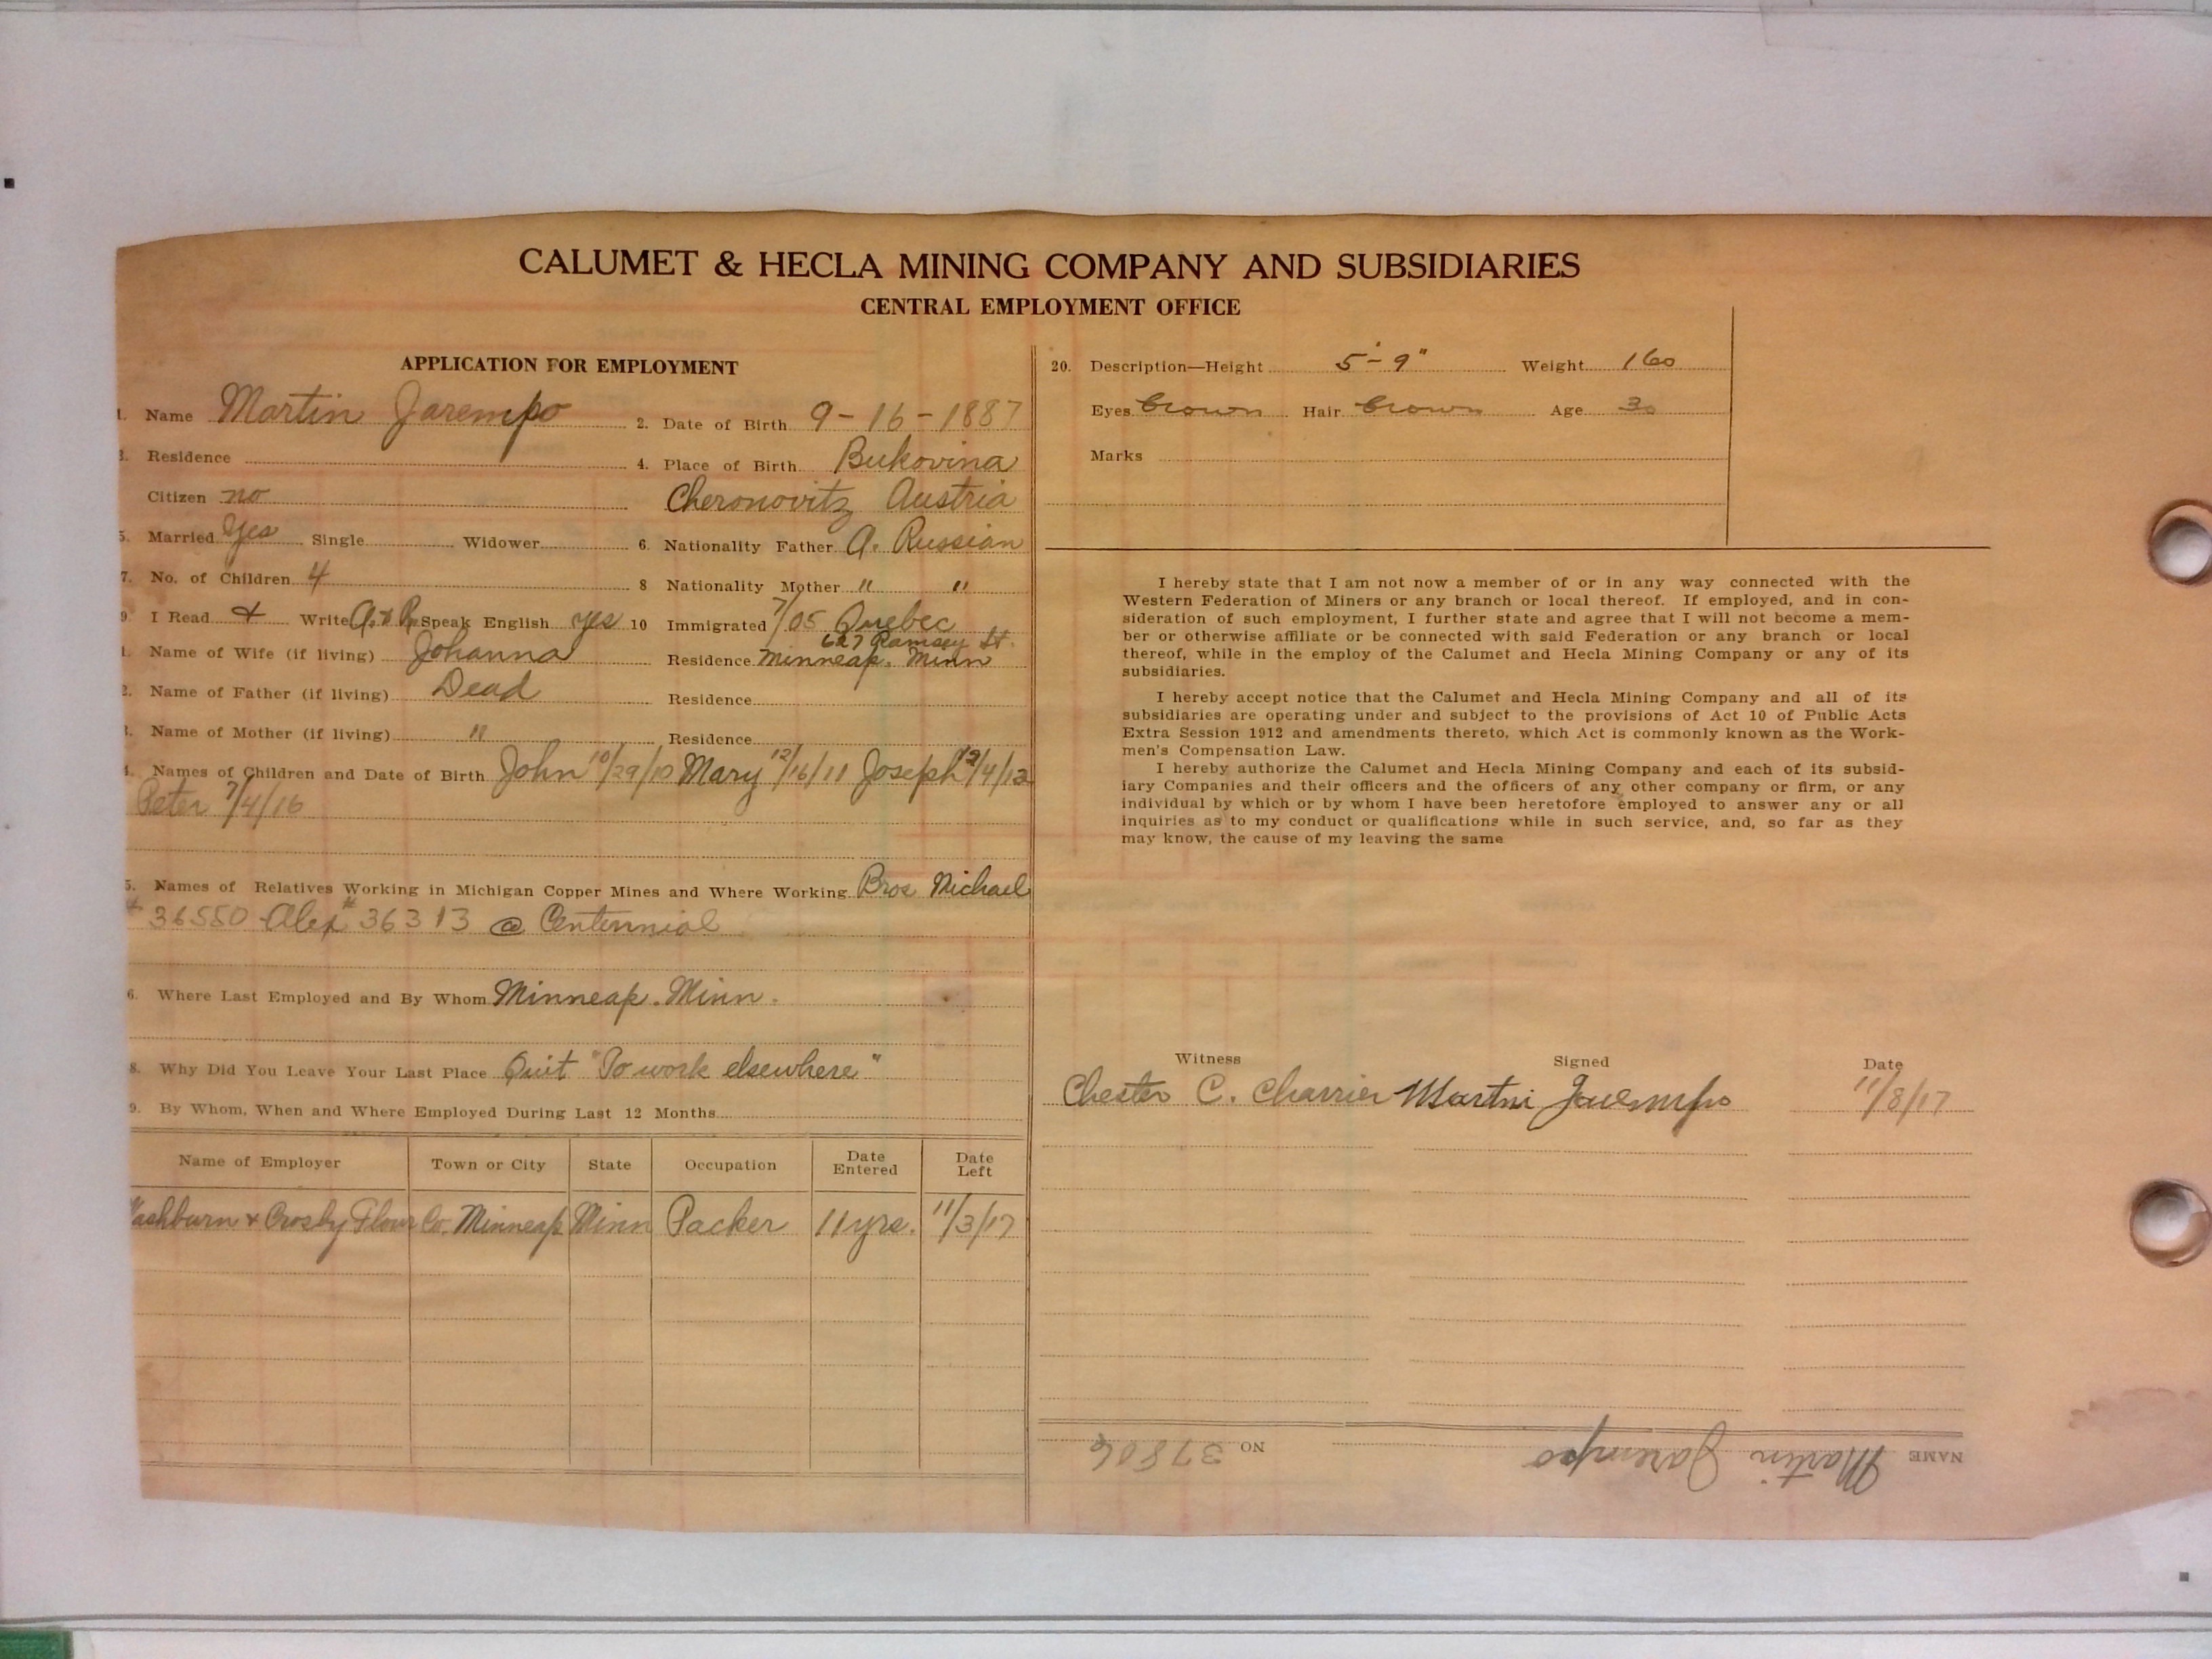 CALUMET & HECLA MINING COMPANY AND SUBSIDIARIES
CENTRAL EMPLOYMENT OFFICE
APPLICATION FOR EMPLOYMENT
1. Name Martin Jarempo 2. Date of Birth 9-16-1887
3. Residence 4. Place of Birth Bukovina
Citizen no Cheronovitz Austria
5. Married Yes Single Widower 6. Nationality Father A. Russian
7. No. of Children 4 8 Nationality Mother " "
9. I Read + Write A. & R. Speak English yes 10 Immigrated 7/05 Quebec
627 Ramsey St.
1. Name of Wife (if living) Johanna Residence Minneap. Minn
2. Name of Father (if living) Dead Residence
3. Name of Mother (if living) " Residence
4. Names of Children and Date of Birth John 10/29/10 Mary 12/16/11 Joseph 12/4/13
Peter 7/4/16
5. Names of Relatives Working in Michigan Copper Mines and Where Working Bros Michael
# 36550 Alex # 36313 @ Centennial
6. Where Last Employed and By Whom Minneap. Minn.
8. Why Did You Leave Your Last Place Quit "To work elsewhere"
9. By Whom, When and Where Employed During Last 12 Months
Name of Employer Town or City State Occupation Date Entered Date Left
Washburn & Crosby Flour Co. Minneap Minn Packer 11 yrs. 11/3/17
20. Description—Height 5'-9" Weight 160
Eyes brown Hair brown Age 30
Marks
I hereby state that I am not now a member of or in any way connected with the
Western Federation of Miners or any branch or local thereof. If employed, and in con-
sideration of such employment, I further state and agree that I will not become a mem-
ber or otherwise affiliate or be connected with said Federation or any branch or local
thereof, while in the employ of the Calumet and Hecla Mining Company or any of its
subsidiaries.
I hereby accept notice that the Calumet and Hecla Mining Company and all of its
subsidiaries are operating under and subject to the provisions of Act 10 of Public Acts
Extra Session 1912 and amendments thereto, which Act is commonly known as the Work-
men's Compensation Law.
I hereby authorize the Calumet and Hecla Mining Company and each of its subsid-
iary Companies and their officers and the officers of any other company or firm, or any
individual by which or by whom I have been heretofore employed to answer any or all
inquiries as to my conduct or qualifications while in such service, and, so far as they
may know, the cause of my leaving the same
Witness Signed Date
Chester C. Charrier Martin Jarempo 11/8/17
NAME Martin Jarempo NO 37806